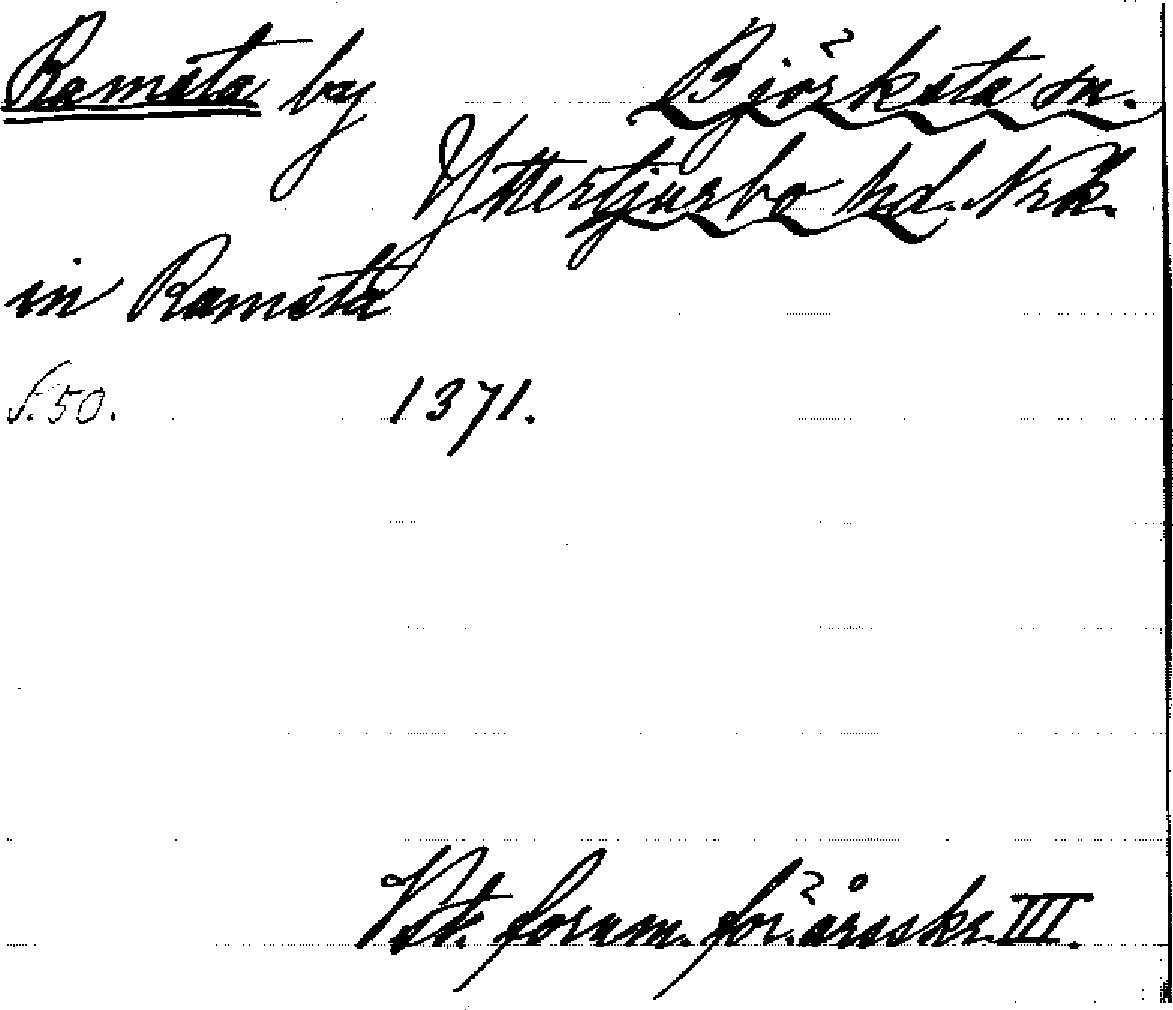 Ramsta by Björksta sn.
Yttertjurbo hd. Nrk.
in Ramsta
S. 50. 1371.
Vst. fornm. för. årsskr. III.